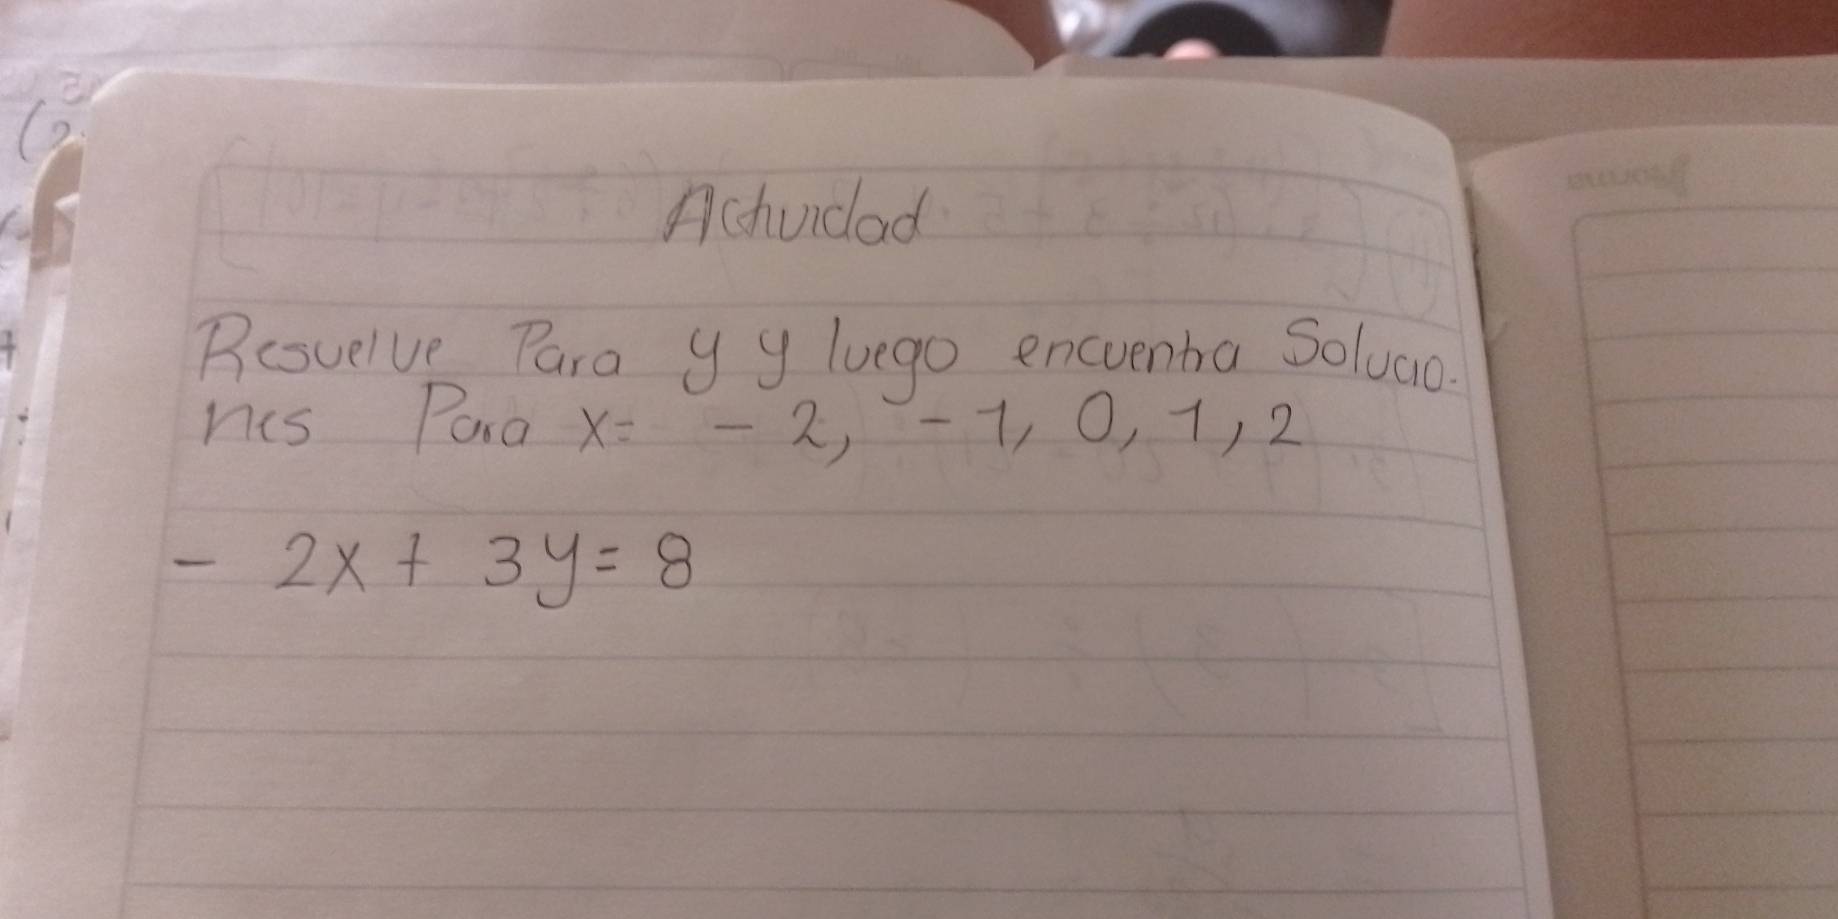 Actividad
Resuelve Para y y luego encuentra Solucio-
nes Para x= -2, -1, 0, 1, 2
- 2x + 3y = 8
Norma